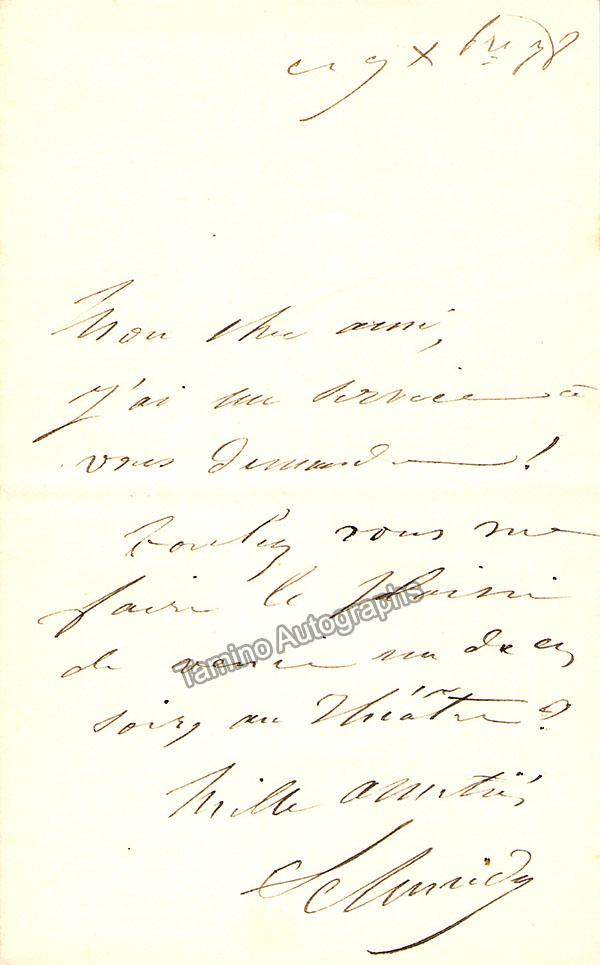 ce 9 Xbre 78
Mon cher ami,
J'ai un service à
vous demander !
Voulez vous me
faire le plaisir
de venir un de ces
soirs au Théâtre ?
Tamino Autographs
Mille amitiés